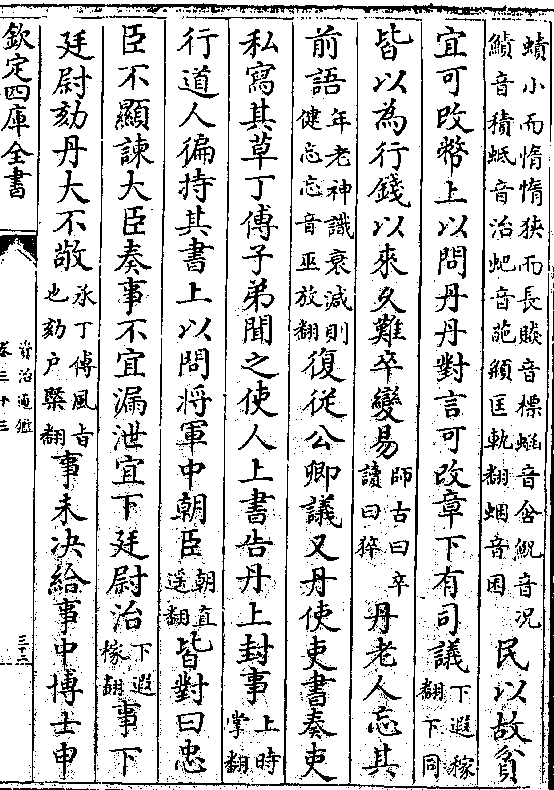 蟦小而惰惰狹而長賧音標蜬音含鯢音况
鰿音積蚔音治虵音跪䫌匡軌翻蜠音囷
民以故貧
宜可改幣上以問丹丹對言可改章下有司議
下遐稼
翻下同
皆以為行錢以來久難卒變易
師古曰卒
讀曰猝
丹老人忘其
前語
年老神識衰減則
健忘忘音巫放翻
復從公卿議又丹使吏書奏吏
私寫其草丁傅子弟聞之使人上書告丹上封事
上時
掌翻
行道人徧持其書上以問將軍中朝臣
朝直
遥翻
皆對曰忠
臣不顯諫大臣奏事不宜漏泄宜下廷尉治
下遐
稼翻
事下
廷尉劾丹大不敬
承丁傅風旨
也劾户槩翻
事未决給事中博士申
欽定四庫全書
資治通鑑
卷三十三
三十二